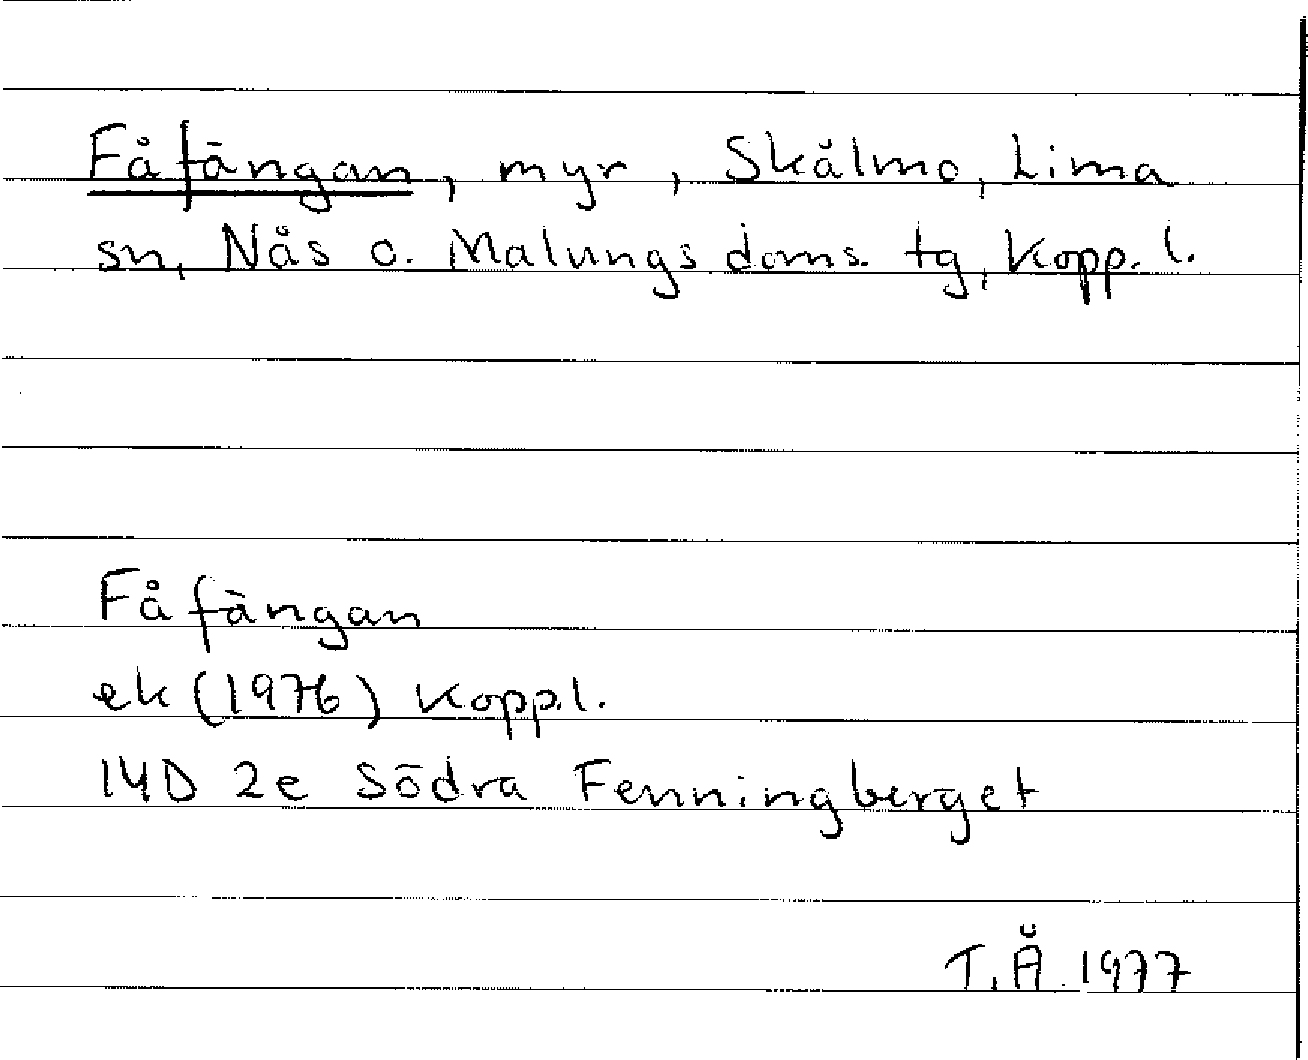 Fåfängan, myr, Skålmo, Lima
sn, Nås o. Malungs doms. tg, Kopp. l.
Fåfängan
ek (1976) Kopp.l.
14D 2e Södra Fenningberget
T.Å. 1977